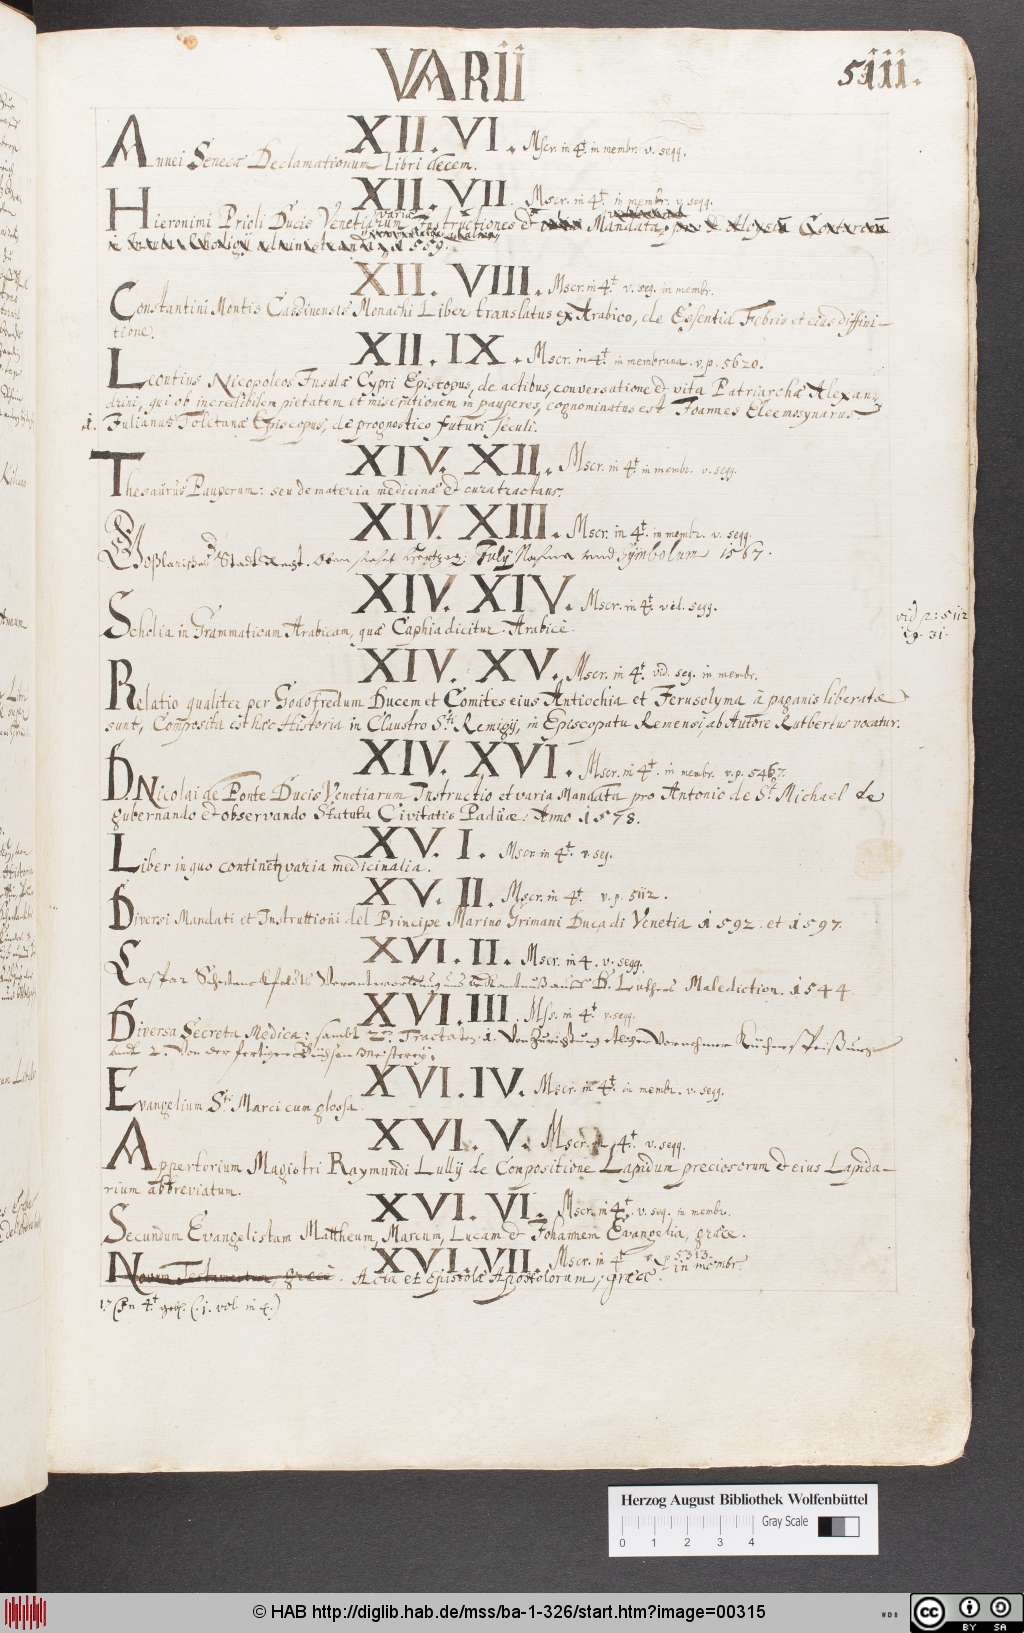 VARII
5111.
XII. VI. Mscr. in 4t. in membr. v. segg.
Annei Senecæ Declamationum Libri decem.
XII. VII. Mscr. in 4t. in membr. v. segg.
Hieronimi Prioli Ducis Venetiarum varia Instructiones et Mandata
1559.
XII. VIII. Mscr. in 4t. v. seg. in membr.
Constantini Montis Cassinensis Monachi Liber translatus ex Arabico, de Essentia Febris et eius diffini-
tione.
XII. IX. Mscr. in 4t. in membrana. v. p. 5620.
Leontius Nicopoleos Insulæ Cypri Episcopus, de actibus, conversatione et vita Patriarchæ Alexan-
drini, qui ob incredibilem pietatem et miserationem in pauperes, cognominatus est Joannes Eleemosynarius
Julianus Toletanæ Episcopus, de prognostico futuri seculi.
XIV. XII. Mscr. in 4t. in membr. v. segg.
Thesaurus Pauperum: seu de materia medicinæ et cura tractans.
XIV. XIII. Mscr. in 4t. in membr. v. segg.
Goßlarisches Stadt Recht. July Nahme und Symbolum 1567.
XIV. XIV. Mscr. in 4t. vid. segg.
Scholia in Grammaticam Arabicam, quæ Caphia dicitur. Arabicè.
vid p: 5112
XIV. XV. Mscr. in 4t. vid. seg. in membr.
Relatio qualiter per Godofredum Ducem et Comites eius Antiochia et Jerusolyma â paganis liberatæ
sunt, Composita est hæc Historia in Claustro Sti. Remigij, in Episcopatu Remensi, ab Autore Rutbertus vocatur.
XIV. XVI. Mscr. in 4t. in membr. v. p. 5467.
D. Nicolai de Ponte Ducis Venetiarum Instructio et varia Mandata pro Antonio de St. Michael de
gubernando et observando Statuta Civitatis Paduæ: Anno 1578.
XV. I. Mscr. in 4t. v. seg.
Liber in quo continentur varia medicinalia.
XV. II. Mscr. in 4t. v. p. 5112.
Diversi Mandati et Instruttioni del Principe Marino Grimani Duca di Venetia 1592. et 1597.
XVI. II. Mscr. in 4. v. segg.
Caspar D. Luthers Malediction. 1544.
XVI. III. Mss. in 4t. v. segg.
Diversa Secreta Medica: sambt 2en Tractaten. 1. Von Zurichtung
und 2. Von der
XVI. IV. Mscr. in 4t. in membr. v. segg.
Evangelium Sti. Marci cum glossa.
XVI. V. Mscr. in 4t. v. segg.
Appertorium Magistri Raymundi Lullij de Conpositione Lapidum preciosorum et eius Lapida-
rium abbreviatum.
XVI. VI. Mscr. in 4t. v. seg. in membr.
Secundum Evangelistam Mattheum, Marcum, Lucam et Johannem Evangelia, græce.
XVI. VII. Mscr. in 4t. v. p. 5313. in membr.
Novum Testamentum, græcè. Acta et Epistolæ Apostolorum, græcè.
Herzog August Bibliothek Wolfenbüttel
Gray Scale
0 1 2 3 4
© HAB http://diglib.hab.de/mss/ba-1-326/start.htm?image=00315
WDB
cc BY SA